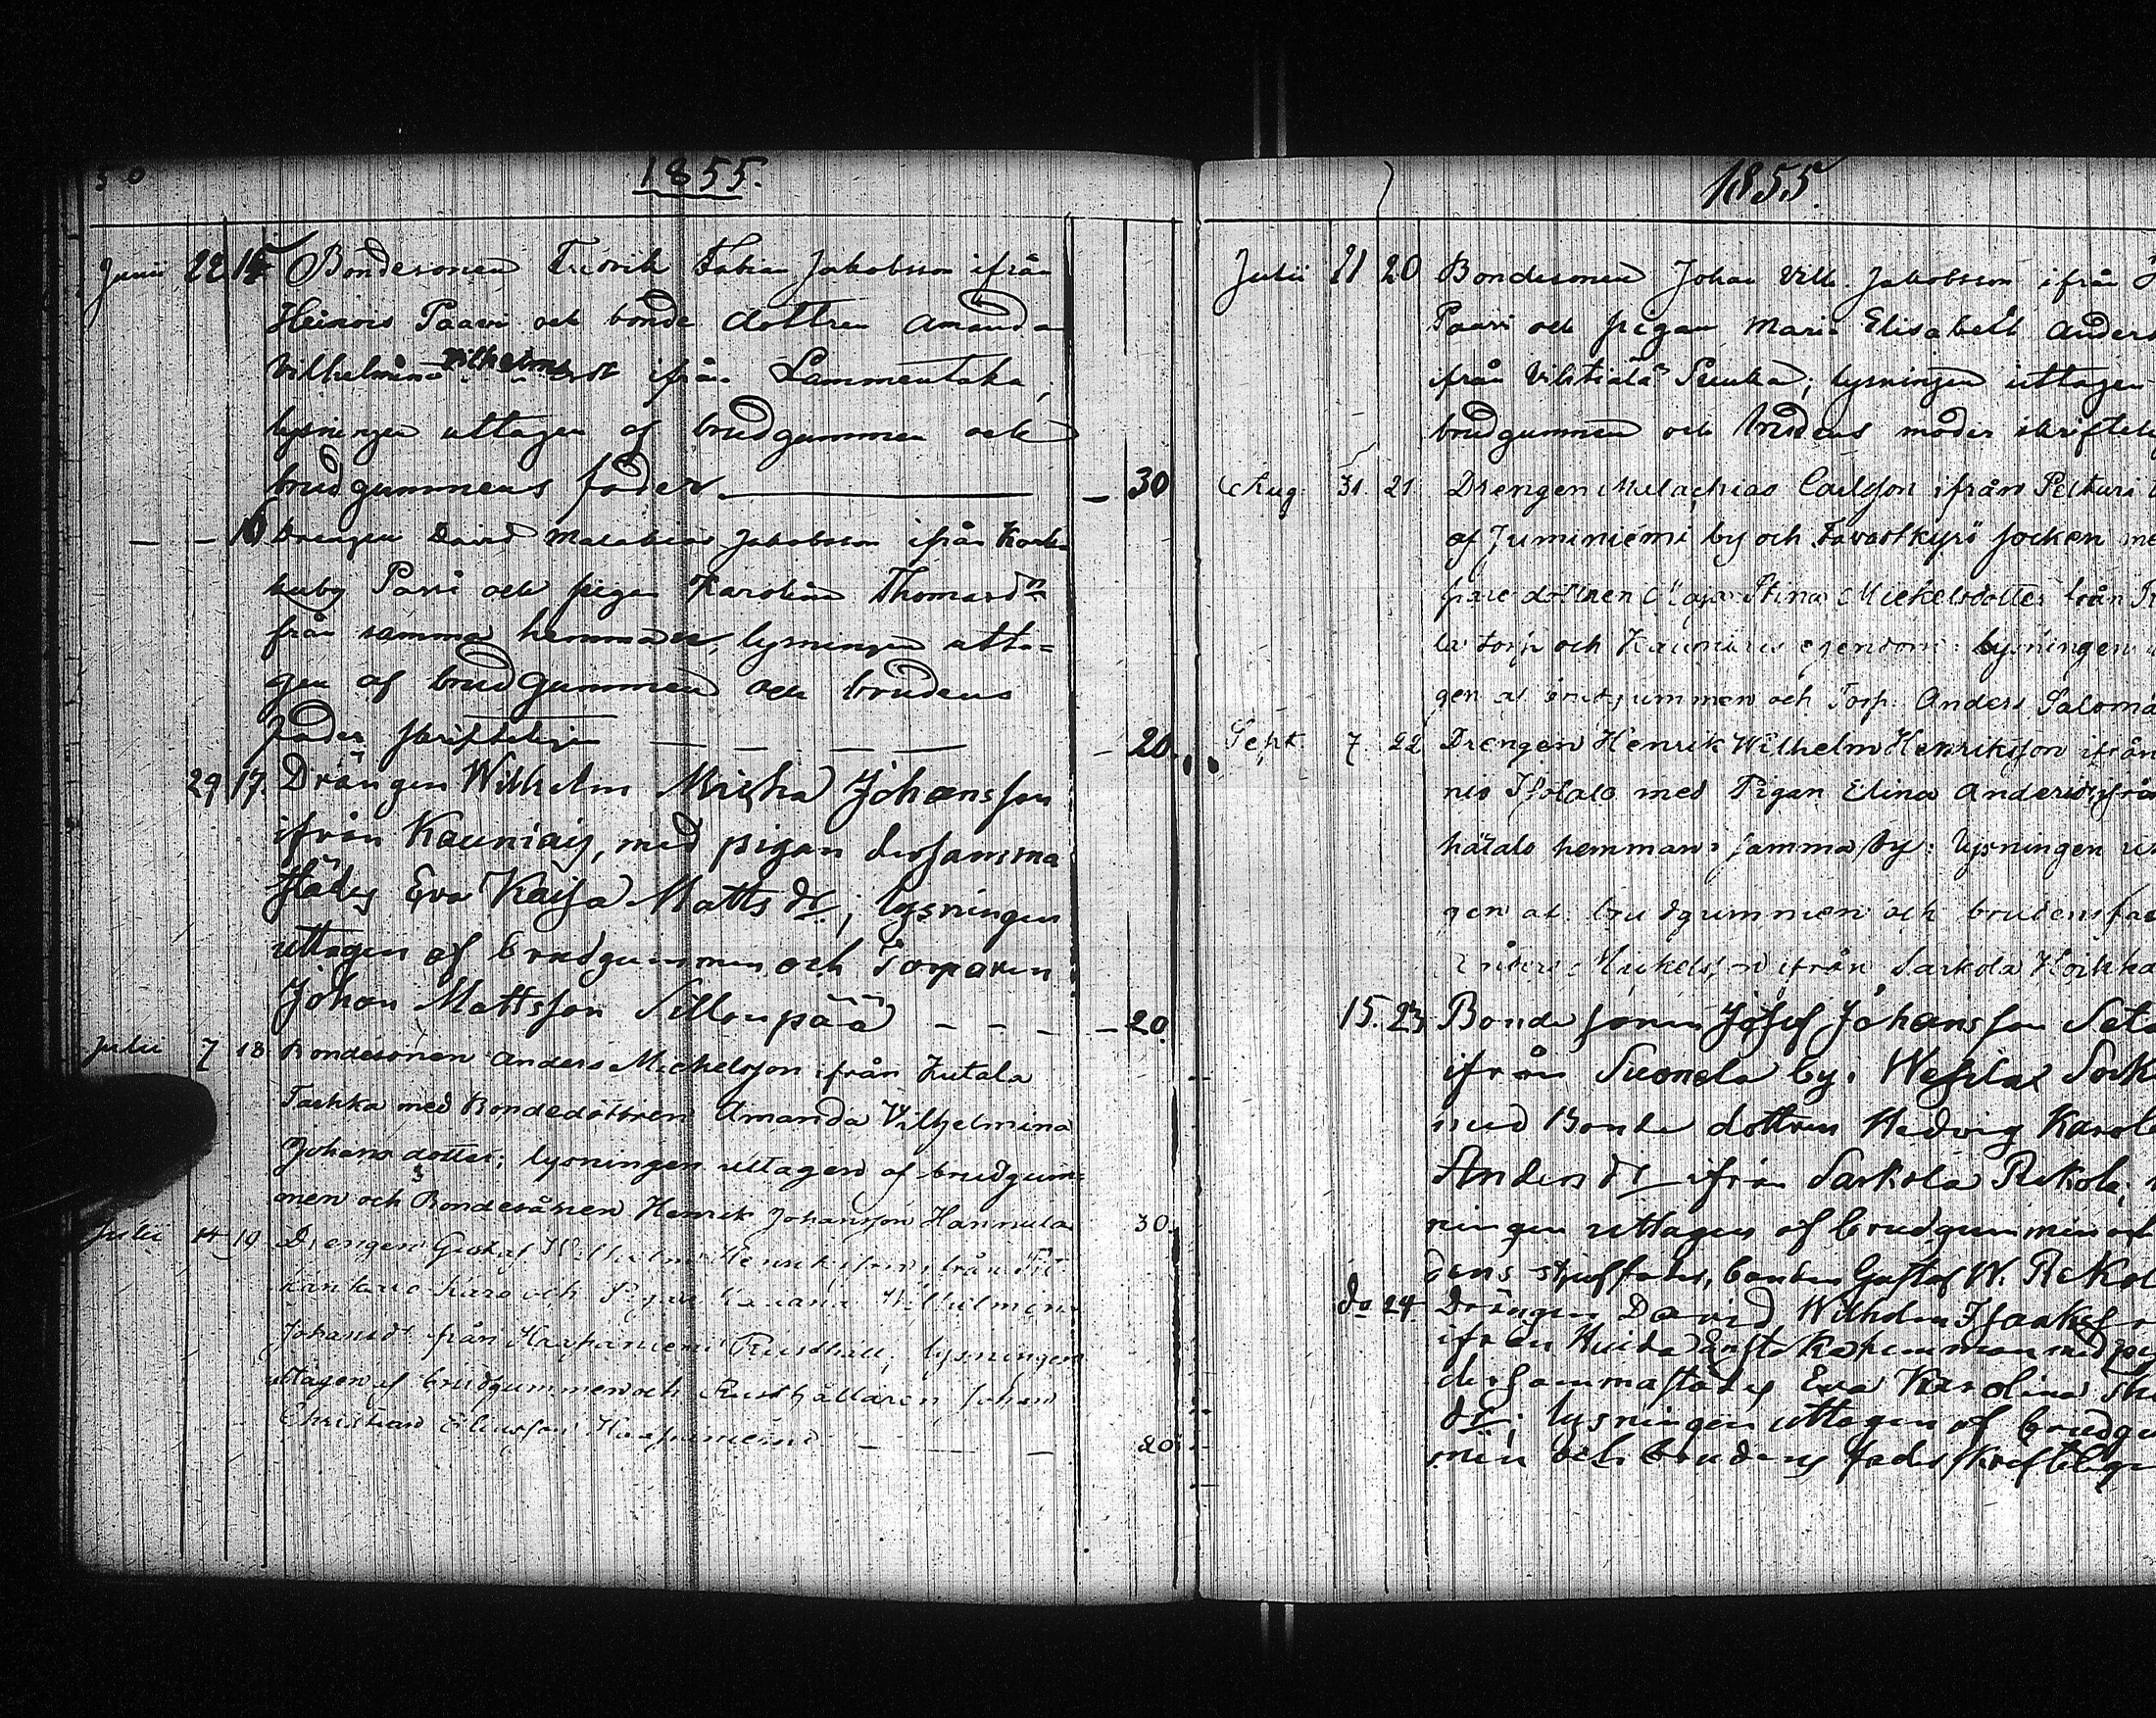 50
1855.
Junii 22 15 Bondesonen Fredrik Fabian Jakobsson ifrån
Heinois Paavi och bonde dottren Amanda
Vilhelmina ifrån Lammentaka,
lysningen uttagen af brudgummen och
brudgummens fader — 30
— — 16 Drengen David Malakias Jakobsson ifrån Kark-
kuby Passi och pigan Karolina Thomasdr
från samma hemman, lysningen utta=
gen af brudgummen och brudens
fader skrifteligen — — — — — 20.
29 17. Drängen Wilhelm Micha Johansson
ifrån Kauniais, med pigan dersamma
städes Eva Kaisa Mattsdr; lysningen
uttagen af brudgummen och Torparen
Johan Mattsson Sillonpää — — — — 20.
Julii 7 18 Bondesonen Anders Michelsson ifrån Kutala
Taskka med Bondedottren Amanda Vilhelmina
Johansdotter; lysningen uttagen af brudgum-
men och Bondesånen Henrik Johansson Hannula 30.
Julii 14 19 Drengen Gustaf Henriksson från
Karo och Pigan Wilhelmina
Johansdr från Haapaniemi Rusthåll, lysningen
uttagen af brudgummen och Rusthållaren Johan
Christian Eliasson Haapaniemi — — — 20
1855.
Julii 21 20 Bondesonen Johan Vilh. Jakobsson ifrån
Paavi och pigan Maria Elisabeth Anders
ifrån Suuka; lysningen uttagen
brudgummen och brudens moder skriftelig
Aug. 31. 21. Drengen Malachias Carlsson ifrån Pelturi
af Juminiemi by och Tavastkyrö socken me
dottren Maja Stina Mickelsdotter från
la torp och Kauniais egendom: lysningen
gen af brudgummen och Torp. Anders Saloma
Sept. 7. 22 Drengen Henrik Wilhelm Henriksson ifrån
nis Isotalo med Pigan Elina Andersdr ifrån
hätalo hemman i samma by: lysningen ut
gen af brudgummen och brudens fa
Anders Mickelsson ifrån Sarkola Hoikka
15. 23 Bonde sonen Josef Johansson Seta
ifrån Suonola by. Wesilax Sock
med Bonde dottren Hedvig Karol
Andersdr ifrån Sarkola Rekola;
ningen uttagen af brudgummen och
dens styffader, bonden Gustaf W. Rekol
do 24. Drängen David Wilhelm Isaksson
ifrån Huida hemman med pig
dersammastädes Eva Karolina Th
dr; lysningen uttagen af brudgu
men och brudens fader skrifteligen